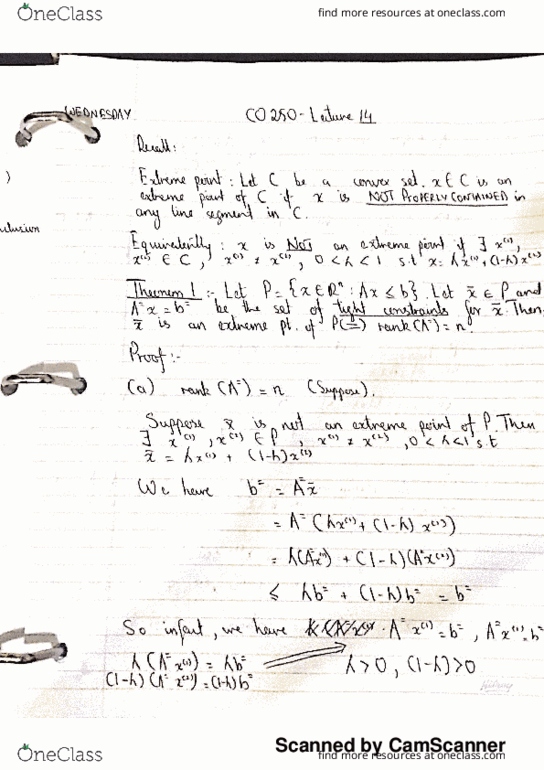 OneClass
find more resources at oneclass.com
WEDNESDAY
CO 250 - Lecture 14
Recall:
)
Extreme point : Let C be a convex set. x ∈ C is an
extreme point of C if x is NOT PROPERLY CONTAINED in
any line segment in C.
Equivalently : x is NOT an extreme point if ∃ x⁽¹⁾,
x⁽²⁾ ∈ C, x⁽¹⁾ ≠ x⁽²⁾, 0 < λ < 1 s.t x = λx⁽¹⁾ + (1-λ)x⁽²⁾
Theorem 1 :- Let P = {x ∈ ℝⁿ : Ax ≤ b}. Let x̄ ∈ P and
A⁼x = b⁼ be the set of tight constraints for x̄. Then
x̄ is an extreme pt. of P ⟺ rank(A⁼) = n
Proof :-
(a) rank (A⁼) = n (Suppose).
Suppose x̄ is not an extreme point of P. Then
∃ x⁽¹⁾, x⁽²⁾ ∈ P, x⁽¹⁾ ≠ x⁽²⁾, 0 < λ < 1 s.t
x̄ = λx⁽¹⁾ + (1-λ)x⁽²⁾
We have b⁼ = A⁼x̄
= A⁼(λx⁽¹⁾ + (1-λ) x⁽²⁾)
= λ(A⁼x⁽¹⁾) + (1-λ)(A⁼x⁽²⁾)
≤ λb⁼ + (1-λ)b⁼ = b⁼
So infact, we have A⁼x⁽¹⁾ = b⁼, A⁼x⁽²⁾ = b⁼
λ(A⁼x⁽¹⁾) = λb⁼ λ > 0, (1-λ) > 0
(1-λ)(A⁼x⁽²⁾) = (1-λ)b⁼
Scanned by CamScanner
OneClass
find more resources at oneclass.com